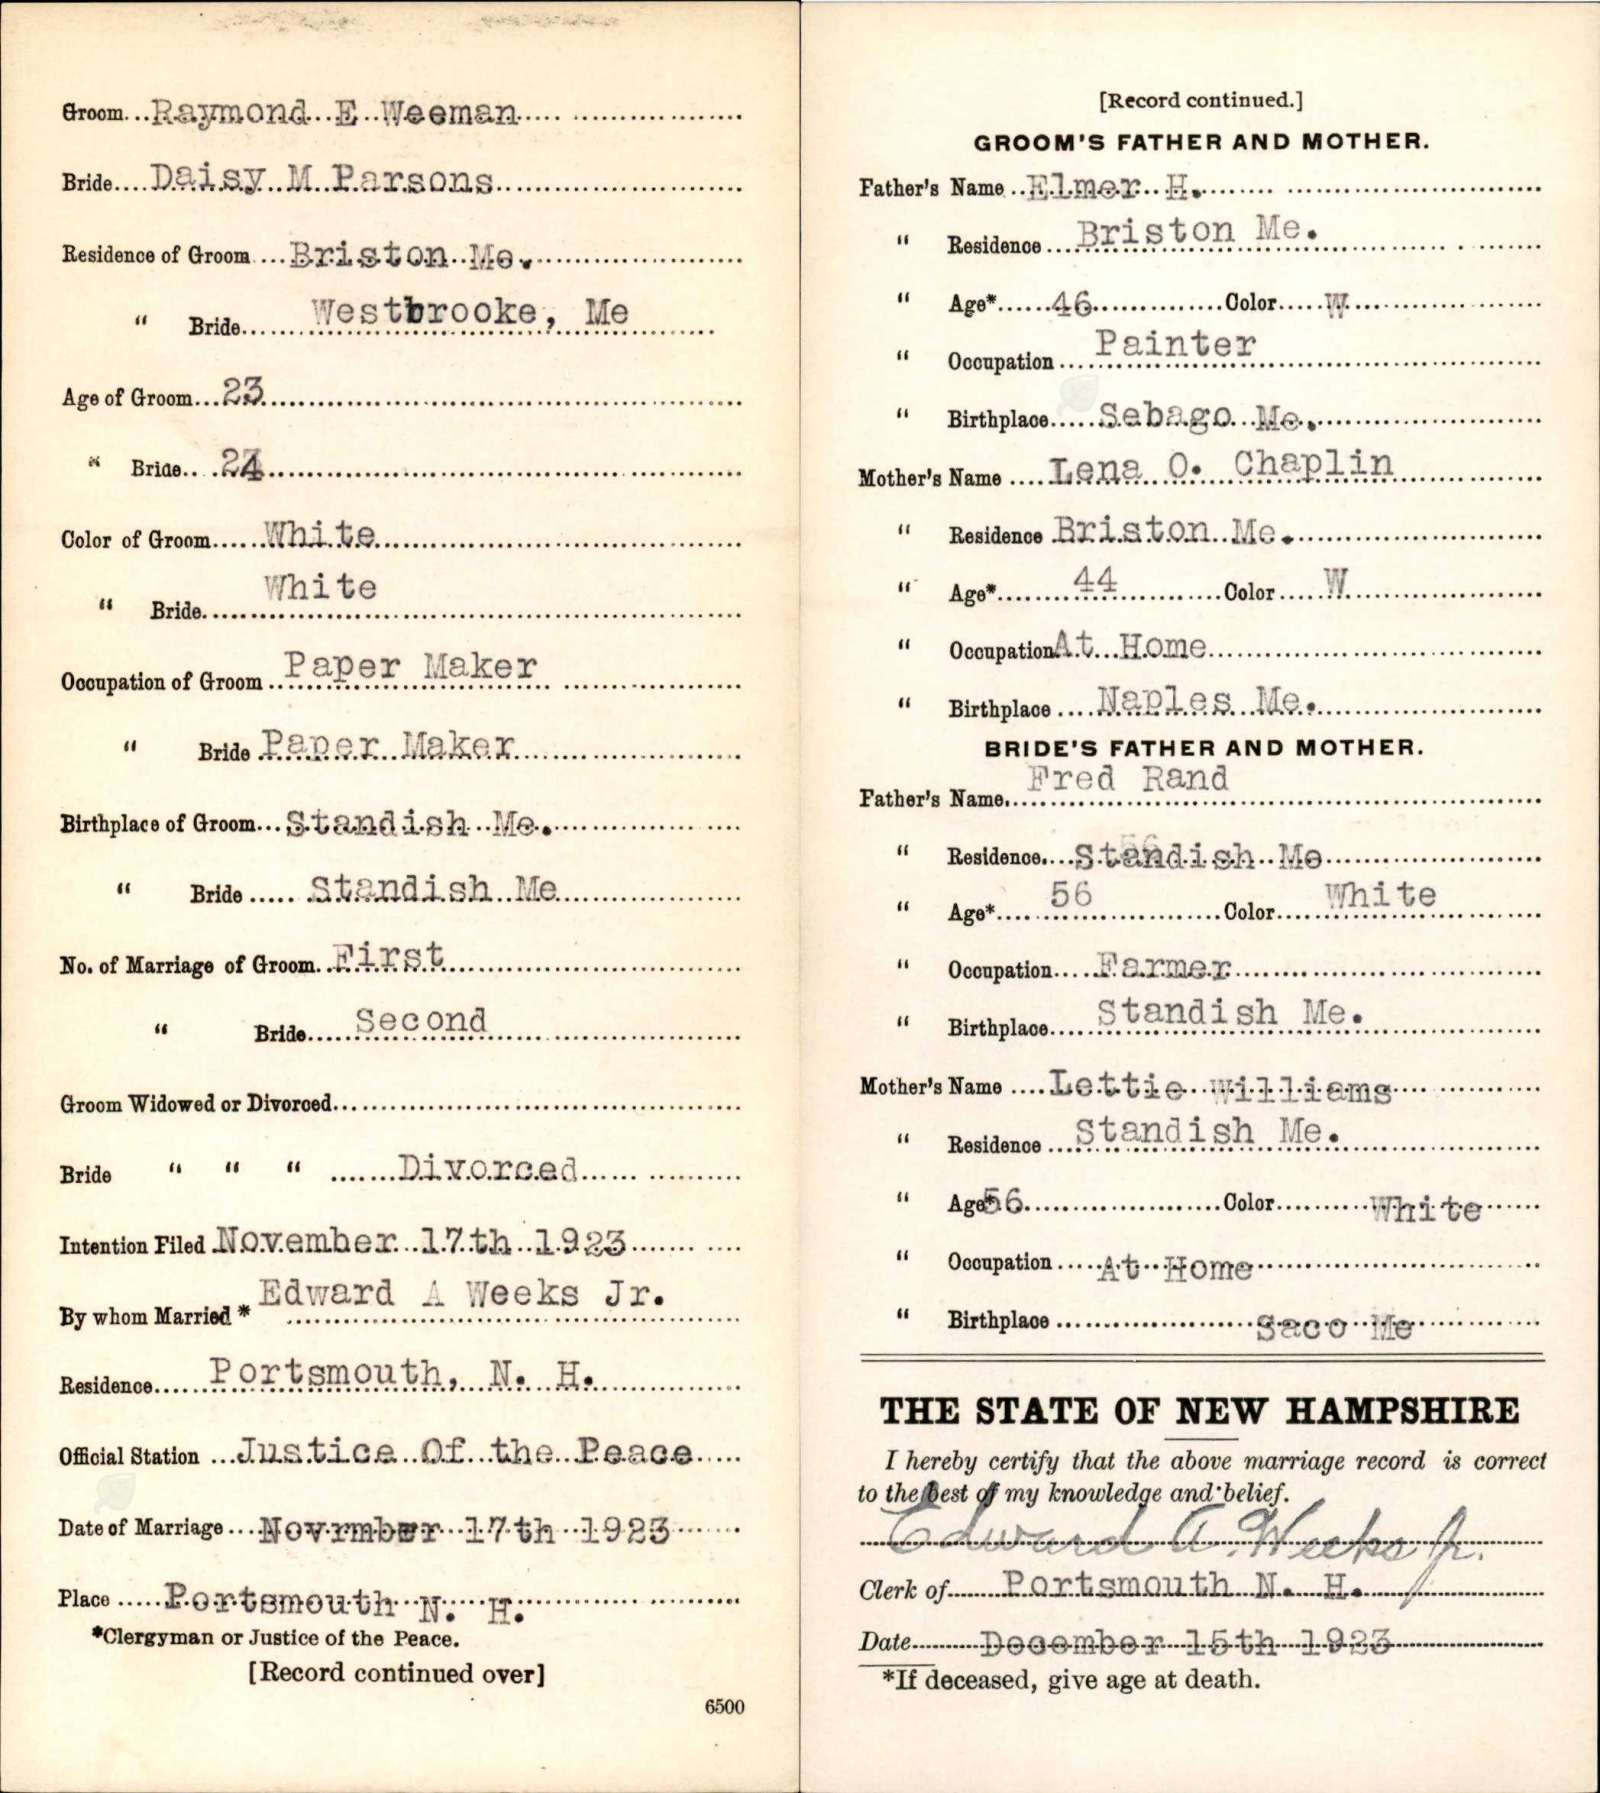 Groom Raymond E Weeman
Bride Daisy M Parsons
Residence of Groom Briston Me.
" Bride Westbrooke, Me
Age of Groom 23
" Bride 24
Color of Groom White
" Bride White
Occupation of Groom Paper Maker
" Bride Paper Maker
Birthplace of Groom Standish Me.
" Bride Standish Me
No. of Marriage of Groom First
" Bride Second
Groom Widowed or Divorced
Bride " " " Divorced
Intention Filed November 17th 1923
By whom Married * Edward A Weeks Jr.
Residence Portsmouth, N. H.
Official Station Justice Of the Peace
Date of Marriage Novrmber 17th 1923
Place Portsmouth N. H.
*Clergyman or Justice of the Peace.
[Record continued over]
6500
[Record continued.]
GROOM'S FATHER AND MOTHER.
Father's Name Elmer H.
" Residence Briston Me.
" Age* 46 Color W
" Occupation Painter
" Birthplace Sebago Me.
Mother's Name Lena O. Chaplin
" Residence Briston Me.
" Age* 44 Color W
" Occupation At Home
" Birthplace Naples Me.
BRIDE'S FATHER AND MOTHER.
Father's Name Fred Rand
" Residence Standish Me
" Age* 56 Color White
" Occupation Farmer
" Birthplace Standish Me.
Mother's Name Lettie Williams
" Residence Standish Me.
" Age* 56 Color White
" Occupation At Home
" Birthplace Saco Me
THE STATE OF NEW HAMPSHIRE
I hereby certify that the above marriage record is correct
to the best of my knowledge and belief.
Edward A. Weeks Jr.
Clerk of Portsmouth N. H.
Date December 15th 1923
*If deceased, give age at death.